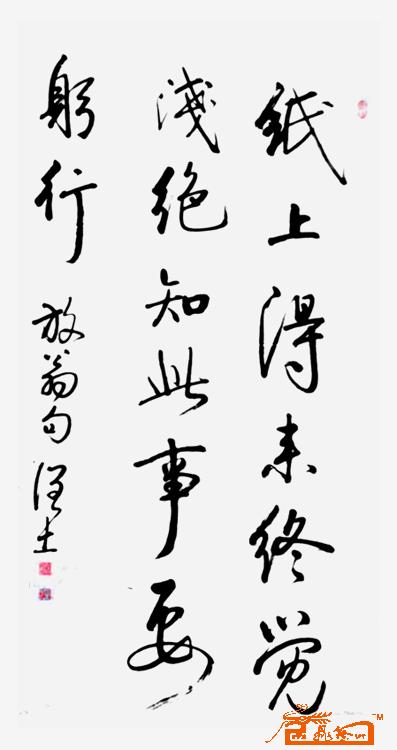 纸上得来终觉
浅绝知此事要
躬行
放翁句